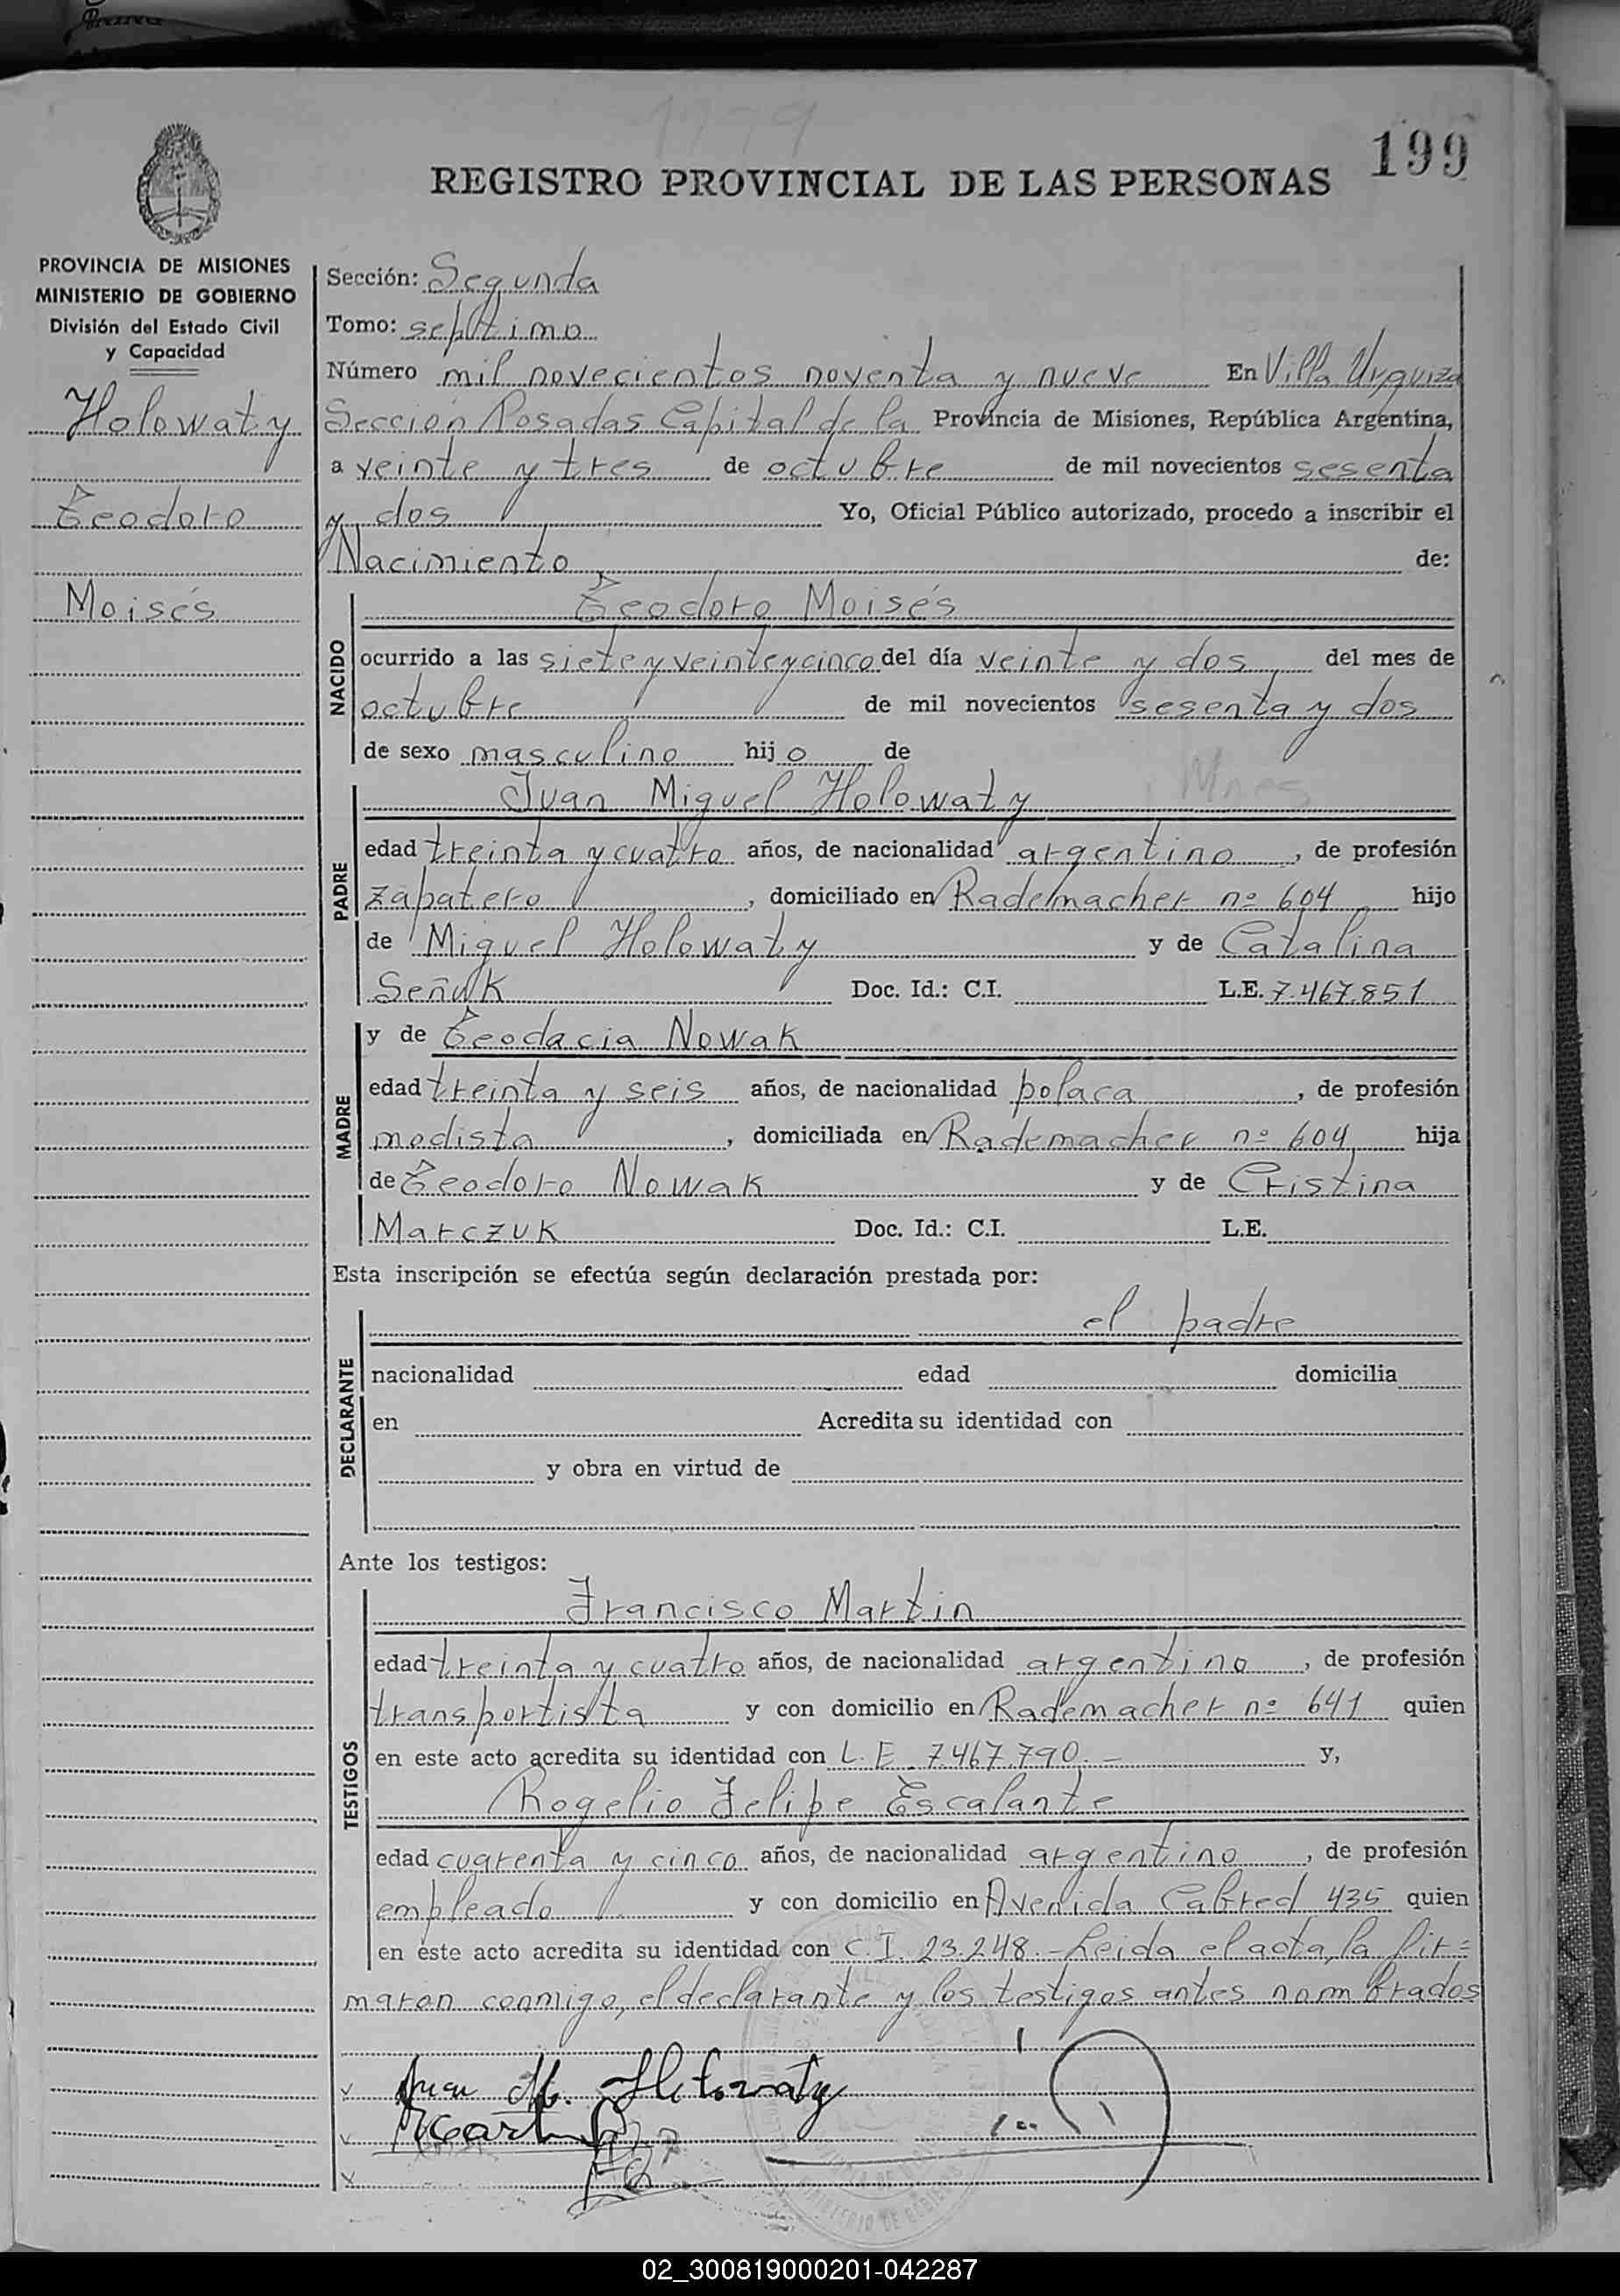 199
REGISTRO PROVINCIAL DE LAS PERSONAS
PROVINCIA DE MISIONES
MINISTERIO DE GOBIERNO
División del Estado Civil
y Capacidad
Holowaty
Teodoro
Moisés
Sección: Segunda
Tomo: septimo
Número mil novecientos noventa y nueve En Villa Urquiza
Sección Posadas Capital de la Provincia de Misiones, República Argentina,
a veinte y tres de octubre de mil novecientos sesenta
y dos Yo, Oficial Público autorizado, procedo a inscribir el
Nacimiento de:
NACIDO
Teodoro Moisés
ocurrido a las siete y veinte y cinco del día veinte y dos del mes de
octubre de mil novecientos sesenta y dos
de sexo masculino hijo de
PADRE
Juan Miguel Holowaty
edad treinta y cuatro años, de nacionalidad argentino, de profesión
zapatero, domiciliado en Rademacher nº 604 hijo
de Miguel Holowaty y de Catalina
Señuk Doc. Id.: C.I. L.E. 7.467.851
MADRE
y de Teodacia Nowak
edad treinta y seis años, de nacionalidad polaca, de profesión
modista, domiciliada en Rademacher nº 604 hija
de Teodoro Nowak y de Cristina
Marczuk Doc. Id.: C.I. L.E.
Esta inscripción se efectúa según declaración prestada por:
DECLARANTE
el padre
nacionalidad edad domicilia
en Acredita su identidad con
y obra en virtud de
Ante los testigos:
TESTIGOS
Francisco Martin
edad treinta y cuatro años, de nacionalidad argentino, de profesión
transportista y con domicilio en Rademacher nº 641 quien
en este acto acredita su identidad con L.E. 7.467.790.- y,
Rogelio Felipe Escalante
edad cuarenta y cinco años, de nacionalidad argentino, de profesión
empleado y con domicilio en Avenida Cabred 435 quien
en este acto acredita su identidad con C.I. 23.248.- Leida el acta, la fir=
maron conmigo, el declarante y los testigos antes nombrados
Juan M. Holowaty
02_300819000201-042287